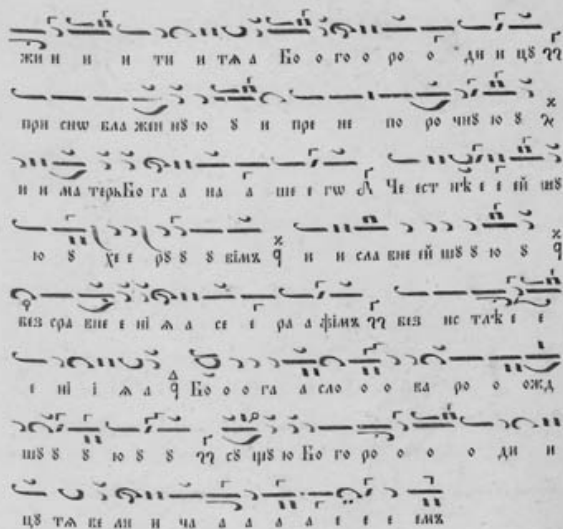 жи и и и ти и тѧ а Бо о го о ро о ди и цꙋ
при снѡ бла жен нꙋ ю ꙋ и пре не по ро чнꙋ ю ꙋ
и и ма терь Бо га а на а ше е гѡ Че ест нѣ е е ей шꙋ
ю ꙋ хе е рꙋ ꙋ ꙋ вімъ и и сла вне ей шꙋ ꙋ ю ꙋ
без сра вне е ні ѧ а се е ра а фімъ без ис тлѣ е е
е ні і ѧ а Бо о о га а сло о о ва ро о ожд
шꙋ ꙋ ꙋ ю ꙋ ꙋ сꙋ щꙋ ю Бо го ро о о о ди и
цꙋ тѧ ве ли и ча а а а а е е е емъ